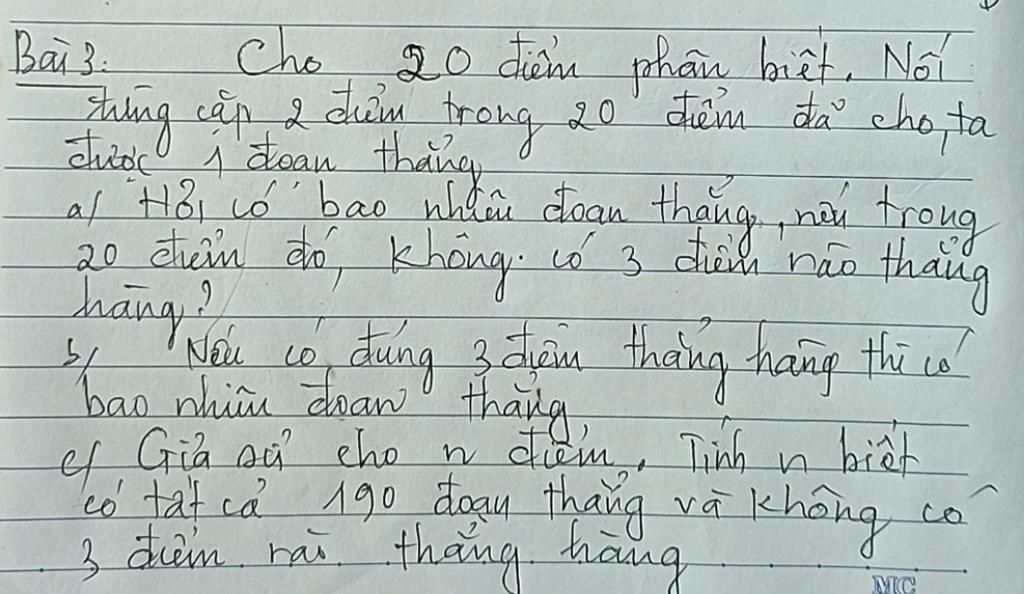 Bài 3: Cho 20 điểm phân biệt. Nối
từng cặp 2 điểm trong 20 điểm đã cho, ta
được 1 đoạn thẳng
a/ Hỏi có bao nhiêu đoạn thẳng, nếu trong
20 điểm đó, không có 3 điểm nào thẳng
hàng?
b/ Nếu có đúng 3 điểm thẳng hàng thì có
bao nhiêu đoạn thẳng,
c/ Giả sử cho n điểm. Tính n biết
có tất cả 190 đoạn thẳng và không có
3 điểm nào thẳng hàng
MC